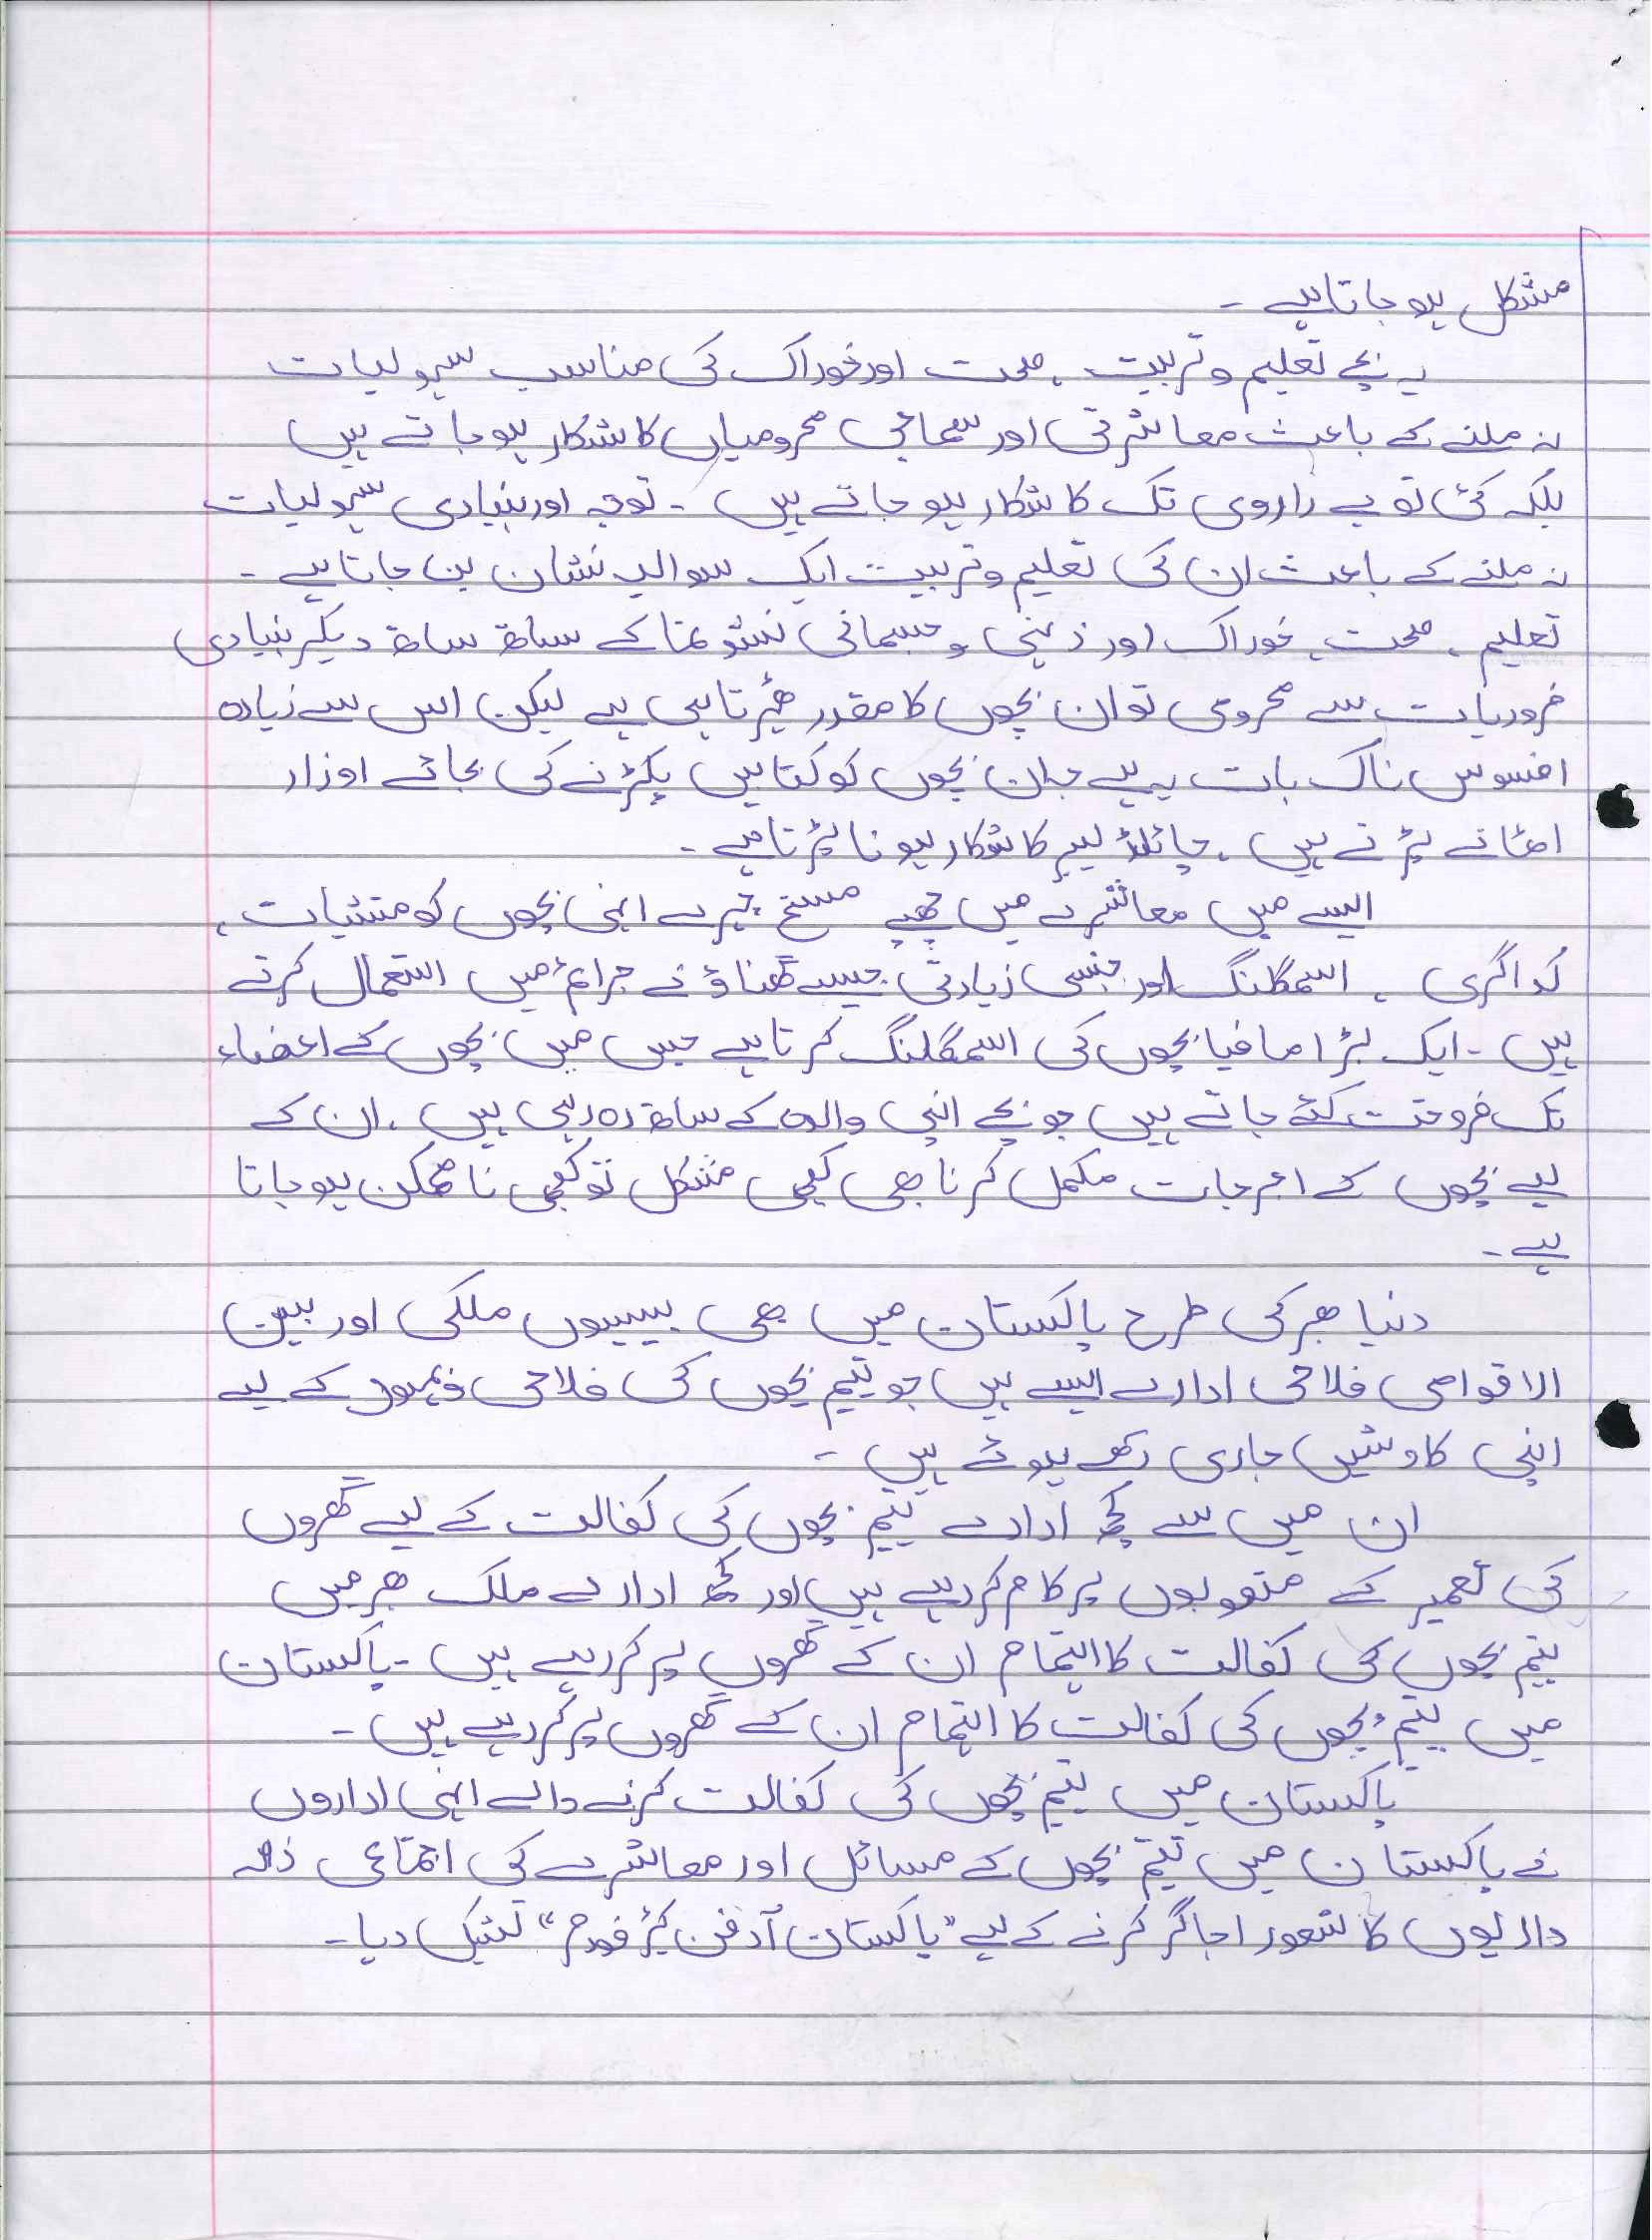 مشکل ہو جاتا ہے ۔
یہ بچے تعلیم و تربیت ، صحت اور خوراک کی مناسب سہولیات
نہ ملنے کے باعث معاشرتی اور سماجی محرومیاں کا شکار ہو جاتے ہیں
بلکہ کئی تو بے راروی تک کا شکار ہو جاتے ہیں ۔ توجہ اور بنیادی سہولیات
نہ ملنے کے باعث ان کی تعلیم و تربیت ایک سوالیہ نشان بن جاتا ہے ۔
تعلیم ، صحت ، خوراک اور ذہنی و جسمانی نشوونما کے ساتھ ساتھ دیگر بنیادی
ضروریات سے محرومی تو ان بچوں کا مقدر ٹھہرتا ہی ہے لیکن اس سے زیادہ
افسوس ناک بات یہ ہے جہان بچوں کو کتابیں پکڑنے کی بجائے اوزار
اٹھانے پڑتے ہیں ، چائلڈ لیبر کا شکار ہونا پڑتا ہے ۔
ایسے میں معاشرے میں چھپے مسخ چہرے انہی بچوں کو منشیات ،
گداگری ، اسمگلنگ اور جنسی زیادتی جیسے گھناؤنے جرائم میں استعمال کرتے
ہیں ۔ ایک بڑا مافیا بچوں کی اسمگلنگ کرتا ہے جس میں بچوں کے اعضاء
تک فروخت کئے جاتے ہیں جو بچے اپنی والدہ کے ساتھ رہ رہی ہیں ، ان کے
لیے بچوں کے اخرجات مکمل کرنا بھی کبھی مشکل تو کبھی ناممکن ہو جاتا
ہے ۔
دنیا بھر کی طرح پاکستان میں بھی بیسیوں ملکی اور بین
الاقوامی فلاحی ادارے ایسے ہیں جو یتیم بچوں کی فلاحی کے لیے
اپنی کاوشیں جاری رکھے ہوئے ہیں ۔
ان میں سے کچھ ادارے یتیم بچوں کی کفالت کے لیے گھروں
کی تعمیر کے منصوبوں پر کام کر رہے ہیں اور کچھ ادارے ملک بھر میں
یتیم بچوں کی کفالت کا اہتمام ان کے گھروں پر کر رہے ہیں ۔ پاکستان
میں یتیم بچوں کی کفالت کا اہتمام ان کے گھروں پر کر رہے ہیں ۔
پاکستان میں یتیم بچوں کی کفالت کرنے والے انہی اداروں
نے پاکستان میں یتیم بچوں کے مسائل اور معاشرے کی اجتماعی ذمہ
داریوں کا شعور اجاگر کرنے کے لیے "پاکستان آرفن کیئر فورم" تشیکل دیا ۔